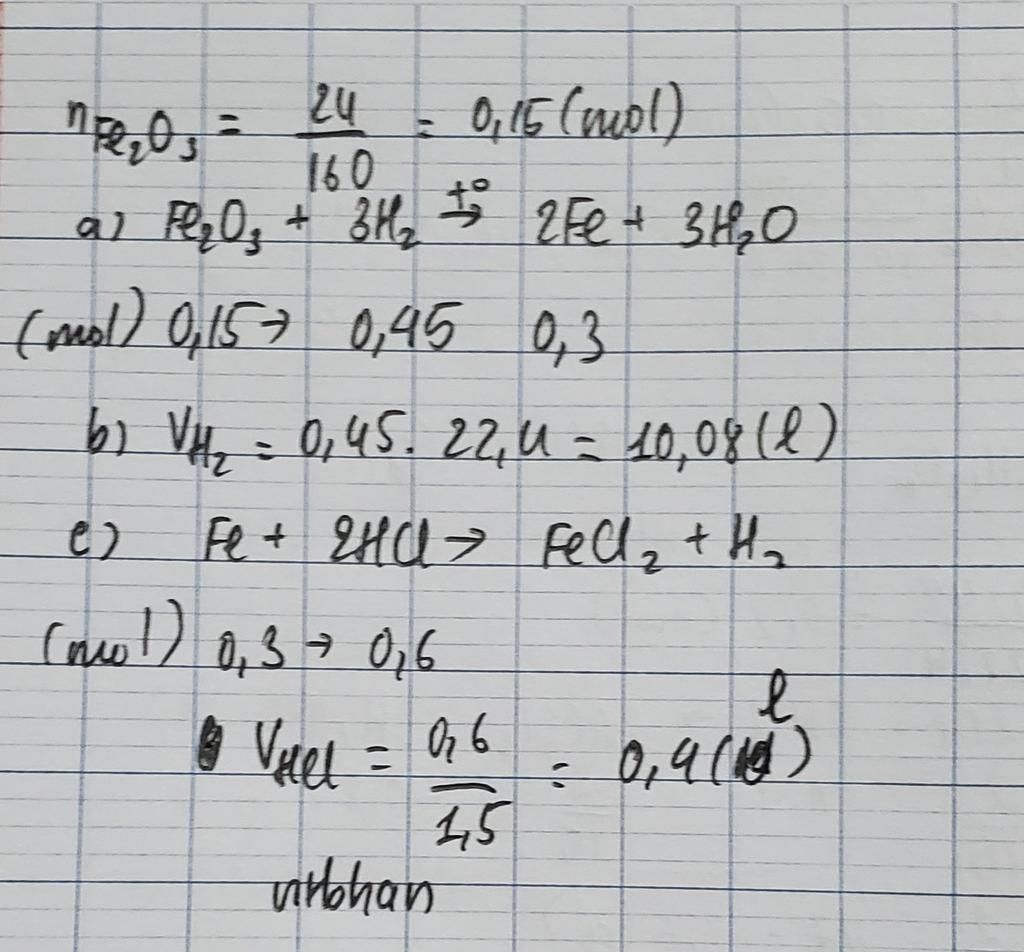 nFe₂O₃ = 24/160 = 0,15 (mol)
a) Fe₂O₃ + 3H₂ t°→ 2Fe + 3H₂O
(mol) 0,15 → 0,45 0,3
b) VH₂ = 0,45. 22,4 = 10,08 (l)
c) Fe + 2HCl → FeCl₂ + H₂
(mol) 0,3 → 0,6
VHCl = 0,6/1,5 = 0,4 (l)